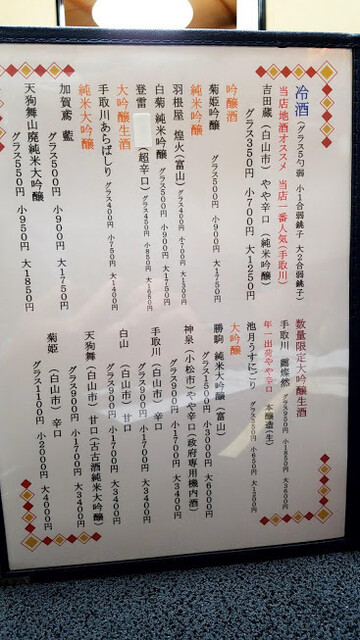 冷酒 (グラス5勺弱 小1合弱銚子 大2合弱銚子)
当店地酒オススメ 当店一番人気(手取川)
吉田蔵 (白山市) やや辛口 (純米吟醸)
グラス350円 小700円 大1250円
吟醸酒
菊姫吟醸 グラス500円 小900円 大1750円
純米吟醸
羽根屋 煌火(富山) グラス400円 小700円 大1300円
白菊 純米吟醸 グラス500円 小900円 大1750円
登雷 (超辛口) グラス450円 小850円 大1650円
大吟醸生酒
手取川あらばしり グラス400円 小750円 大1400円
純米大吟醸
加賀鳶 藍 グラス500円 小900円 大1750円
天狗舞山廃純米大吟醸
グラス550円 小950円 大1850円
数量限定大吟醸生酒
手取川 グラス950円 小1850円 大3600円
年一出荷やや辛口 本醸造(生)
池月うすにごり グラス350円 小650円 大1200円
大吟醸
勝駒 純米大吟醸 (富山)
グラス1500円 小3000円 大6000円
神泉 (小松市) やや辛口 (政府専用機内酒)
グラス900円 小1700円 大3400円
手取川 (白山市) 辛口
グラス900円 小1700円 大3400円
白山 (白山市) 甘口
グラス900円 小1700円 大3400円
天狗舞 (白山市) 甘口 (古古酒純米大吟醸)
グラス900円 小1700円 大3400円
菊姫 (白山市) 辛口
グラス1100円 小2000円 大4000円